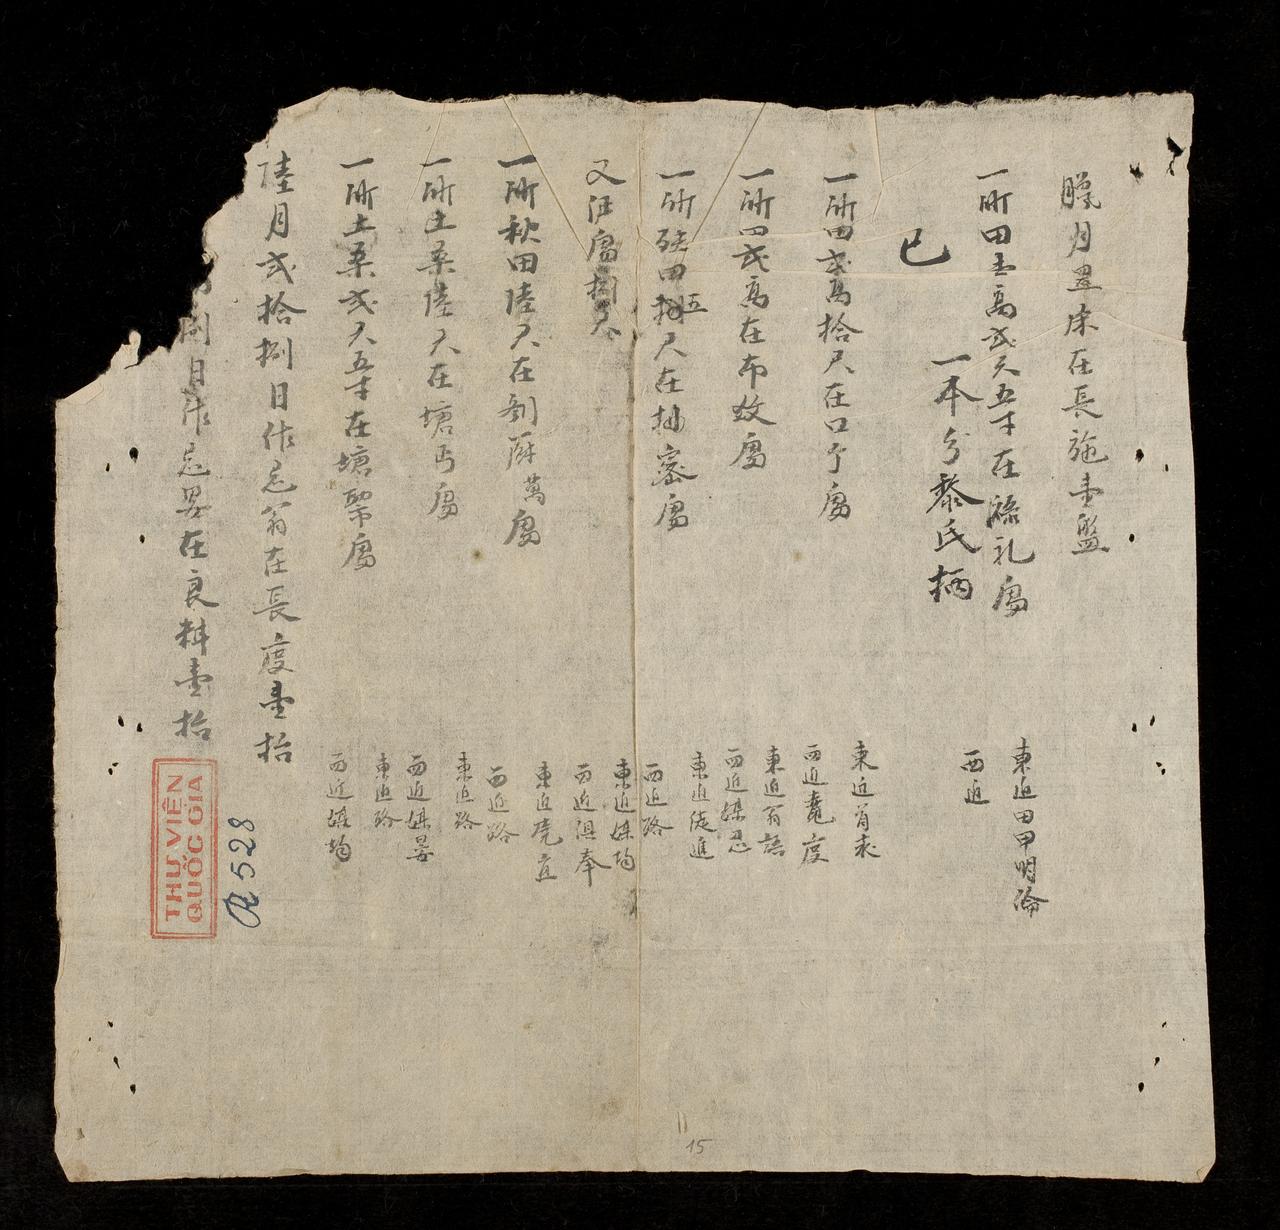 臘月置床在長施壹盤
一所田壹高弍尺五寸在祿礼處
東近田甲明倫
西近
一本分黎氏柄
巳
一所田弍高拾尺在口亇處
東近肖永
西近竜度
一所田弍高在布蚊處
東近翁語
西近妹忍
一所秧田捌五尺在抽密處
東近徒進
西近路
又汪處捌尺
東近妹均
西近俱奉
一所秋田陸尺在厨萬處
東近堯宜
西近路
一所土桑陸尺在塘丐處
東近路
西近妹晏
一所土桑弍尺五寸在塘處
東近路
西近妹均
陸月弍拾捌日作忌翁在長度壹抬
月捌日作忌在良料壹抬
THƯ VIỆN
QUỐC GIA
R528
15